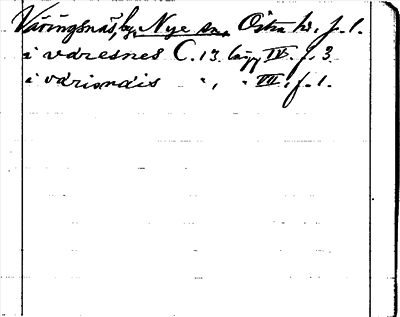 Väringsnäs, by, Nye sn, Östra hd, f. 1.
i väresnes C. 13. lägg IV. f. 3
i värisnäis " , " VII, f. 1.